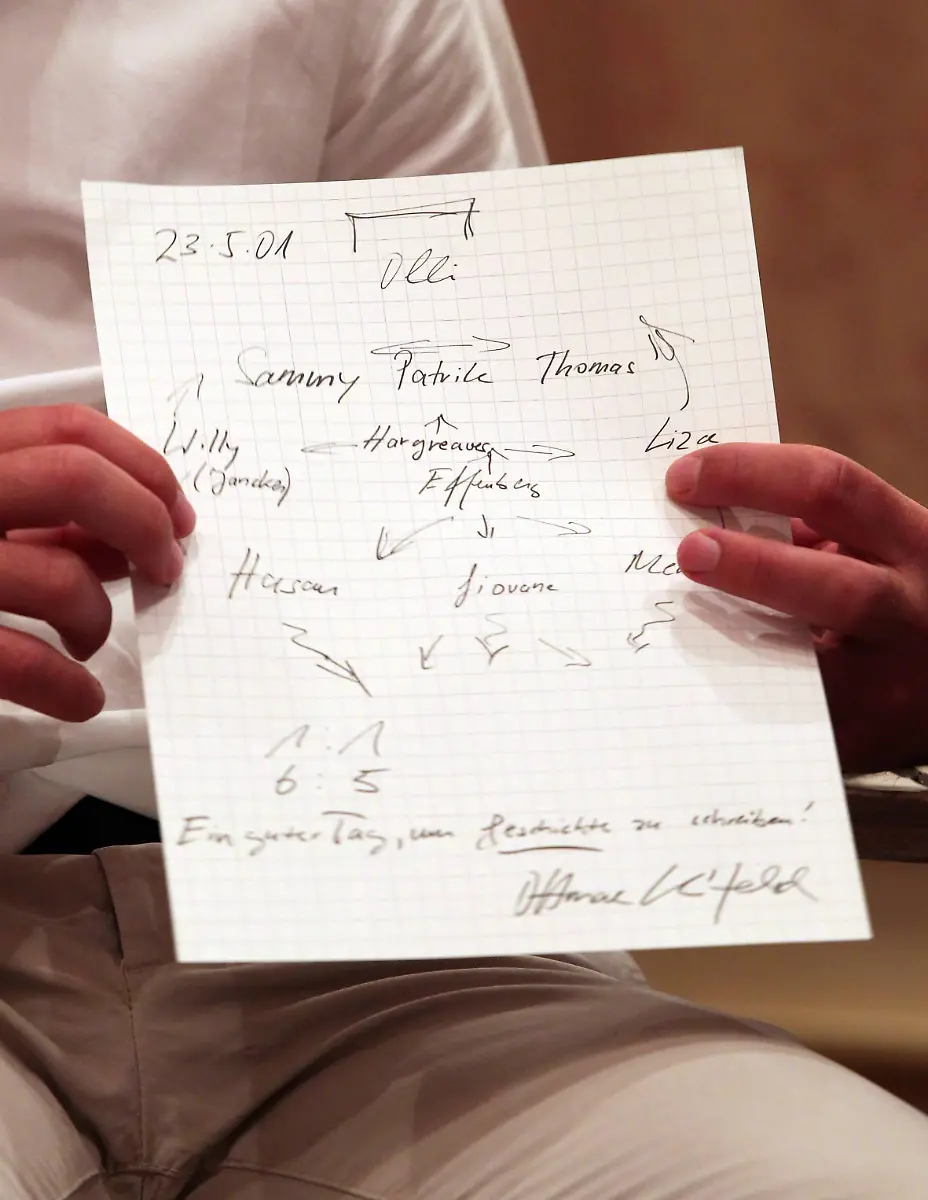 23.5.01
Olli
Sammy Patrik Thomas
Willy Hargreaves Liza
(Jancker) Effenberg
Hasan Giovane Me
1:1
6:5
Ein guter Tag, um Geschichte zu schreiben!
Ottmar Hitzfeld